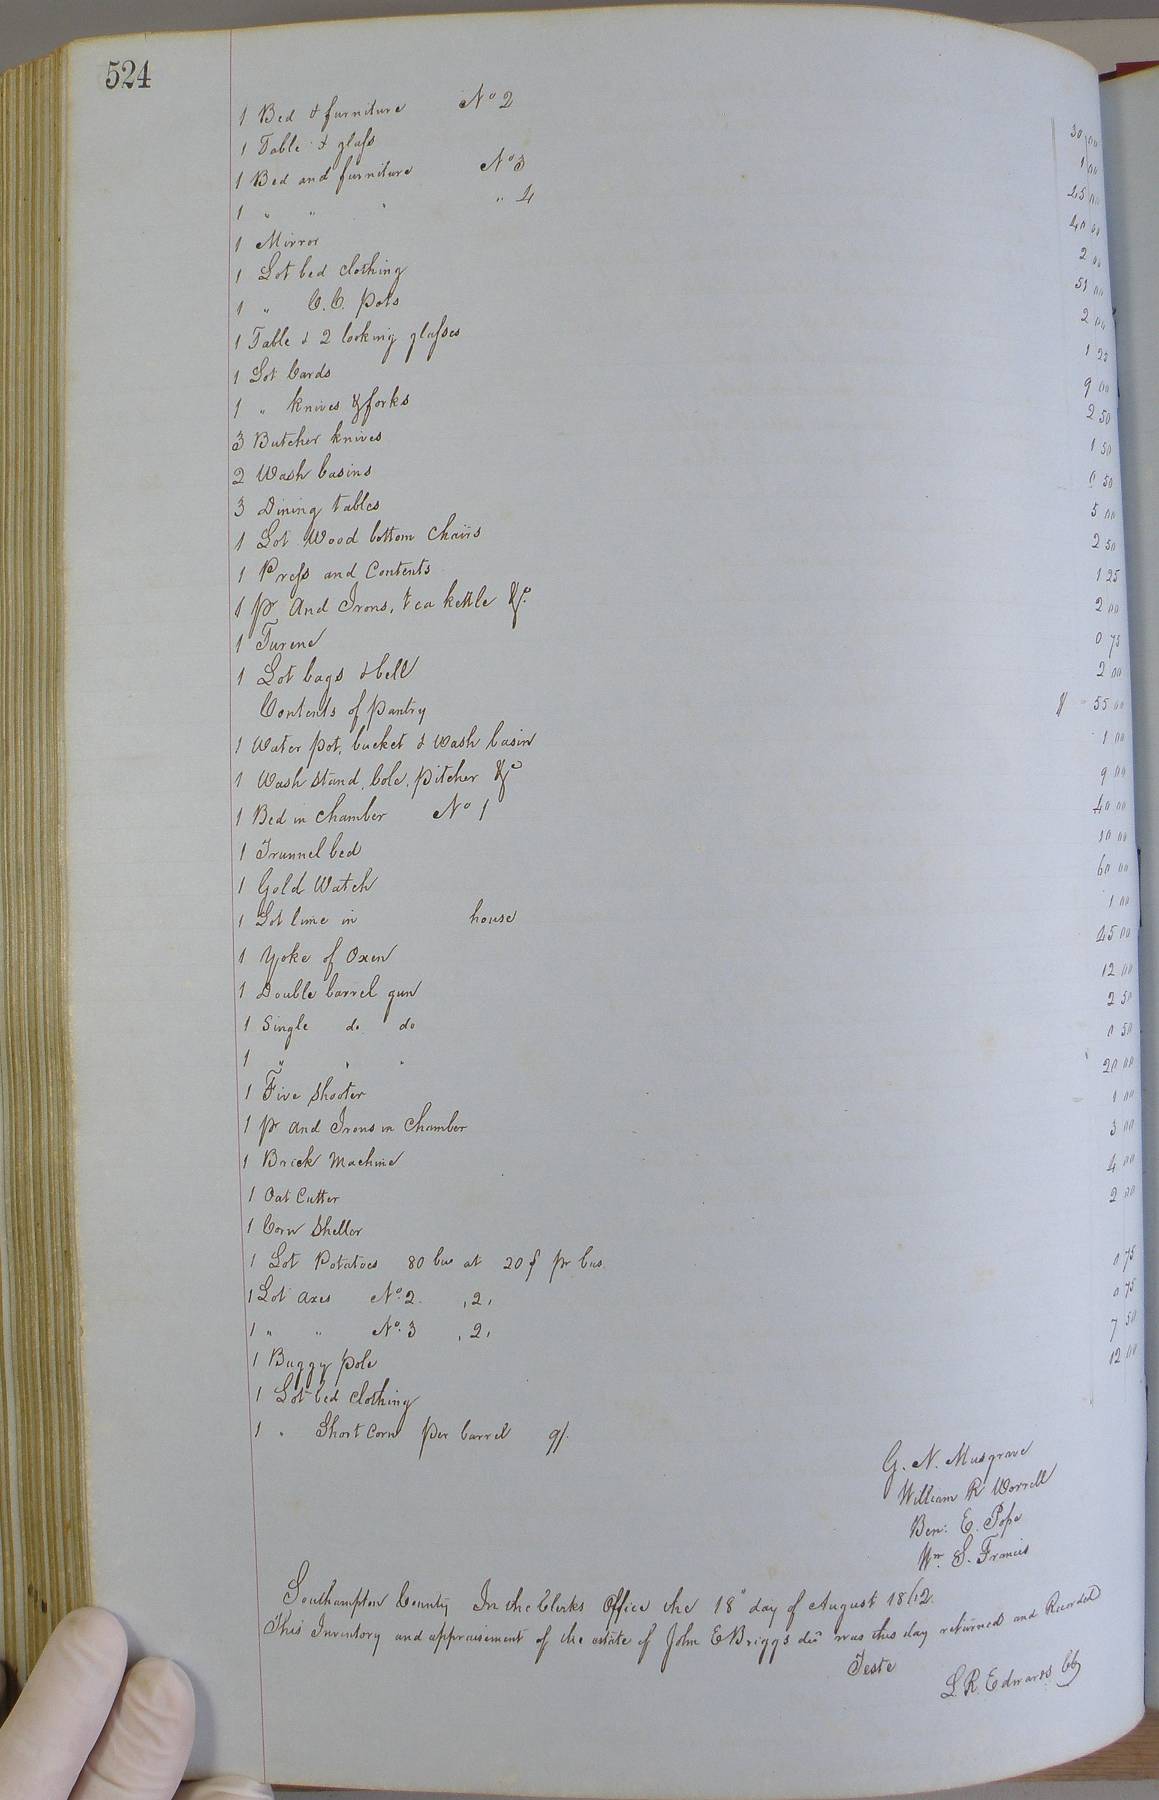 524
1 Bed & furniture No 2 30 00
1 Table & glass 1 00
1 Bed and furniture No 3 45 00
1 " " " " 4 40 00
1 Mirror 2 00
1 Lot bed clothing 51 00
1 " C.C. pots 2 00
1 Table & 2 looking glasses 1 25
1 Lot Cards 9 00
1 " knives & forks 2 50
3 Butcher knives 1 50
2 Wash basins 0 50
3 Dining tables 5 00
1 Lot Wood bottom Chairs 2 50
1 Press and Contents 1 25
1 pr And Irons, tea kettle &c 2 00
1 Turene 0 75
1 Lot bags & bell 2 00
Contents of pantry $ 55 00
1 Water pot, bucket & Wash basin 1 00
1 Wash stand, bole, pitcher &c 9 00
1 Bed in Chamber No 1 40 00
1 Trunnel bed 10 00
1 Gold Watch 60 00
1 Lot lime in house 1 00
1 Yoke of Oxen 45 00
1 Double barrel gun 12 00
1 Single do do 2 50
1 " " " 0 50
1 Five shooter 20 00
1 pr And Irons in Chamber 1 00
1 Brick Machine 3 00
1 Oat Cutter 4 00
1 Corn Shellor 2 00
1 Lot Potatoes 80 bus at 20 pr bus.
1 Lot axes No. 2. , 2, 0 75
1 " " No. 3 , 2, 0 75
1 Buggy pole 7 50
1 Lot bed clothing 12 00
1 " Short Corn per barrel 9/.
G. N. Musgrave
William R Worrell
Ben: E. Pope
Wm. S. Francis
Southampton County In the Clerks Office the 18" day of August
This Inventory and appraisement of the estate of John E Briggs decd was this day returned and Recorded
Teste
L. R. Edwards